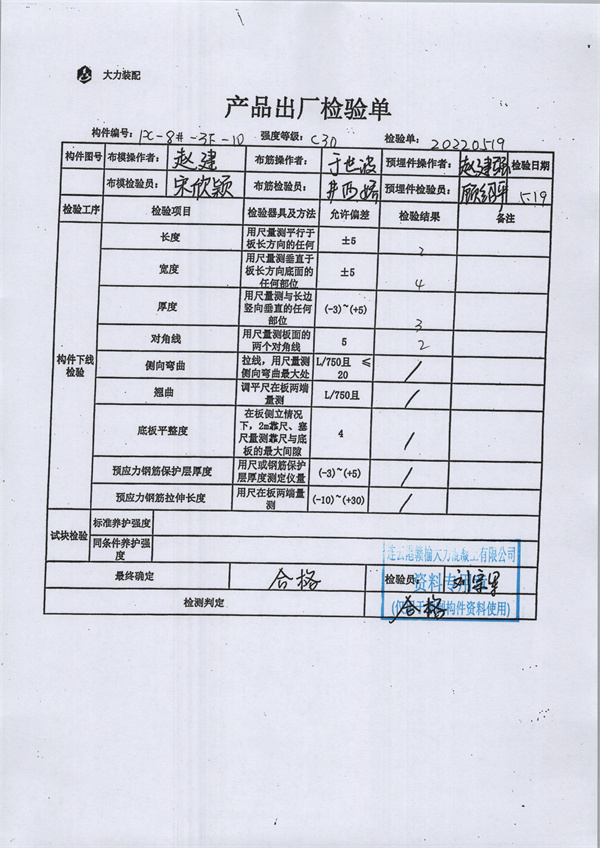 大力装配
产品出厂检验单
构件编号: PC-8#-3F-10 强度等级: C30 检验单: 20220519
构件图号 布模操作者: 赵建 布筋操作者: 于世波 预埋件操作者: 赵建强 检验日期
布模检验员: 宋欣颖 布筋检验员: 预埋件检验员: 5.19
检验工序 检验项目 检验器具及方法 允许偏差 检验结果 备注
构件下线检验
长度 用尺量测平行于板长方向的任何 ±5 2
宽度 用尺量测垂直于板长方向底面的任何部位 ±5 4
厚度 用尺量测与长边竖向垂直的任何部位 (-3)~(+5) 3
对角线 用尺量测板面的两个对角线 5 2
侧向弯曲 拉线，用尺量测侧向弯曲最大处 L/750且 ≤20 /
翘曲 调平尺在板两端量测 L/750且 /
底板平整度 在板侧立情况下，2m靠尺、塞尺量测靠尺与底板的最大间隙 4 /
预应力钢筋保护层厚度 用尺或钢筋保护层厚度测定仪量 (-3)~(+5) /
预应力钢筋拉伸长度 用尺在板两端量测 (-10)~(+30) /
试块检验 标准养护强度
同条件养护强度
连云港赣榆大力混凝土有限公司
最终确定 合格 检验员:
资料专用
检测判定 合格
构件资料使用)